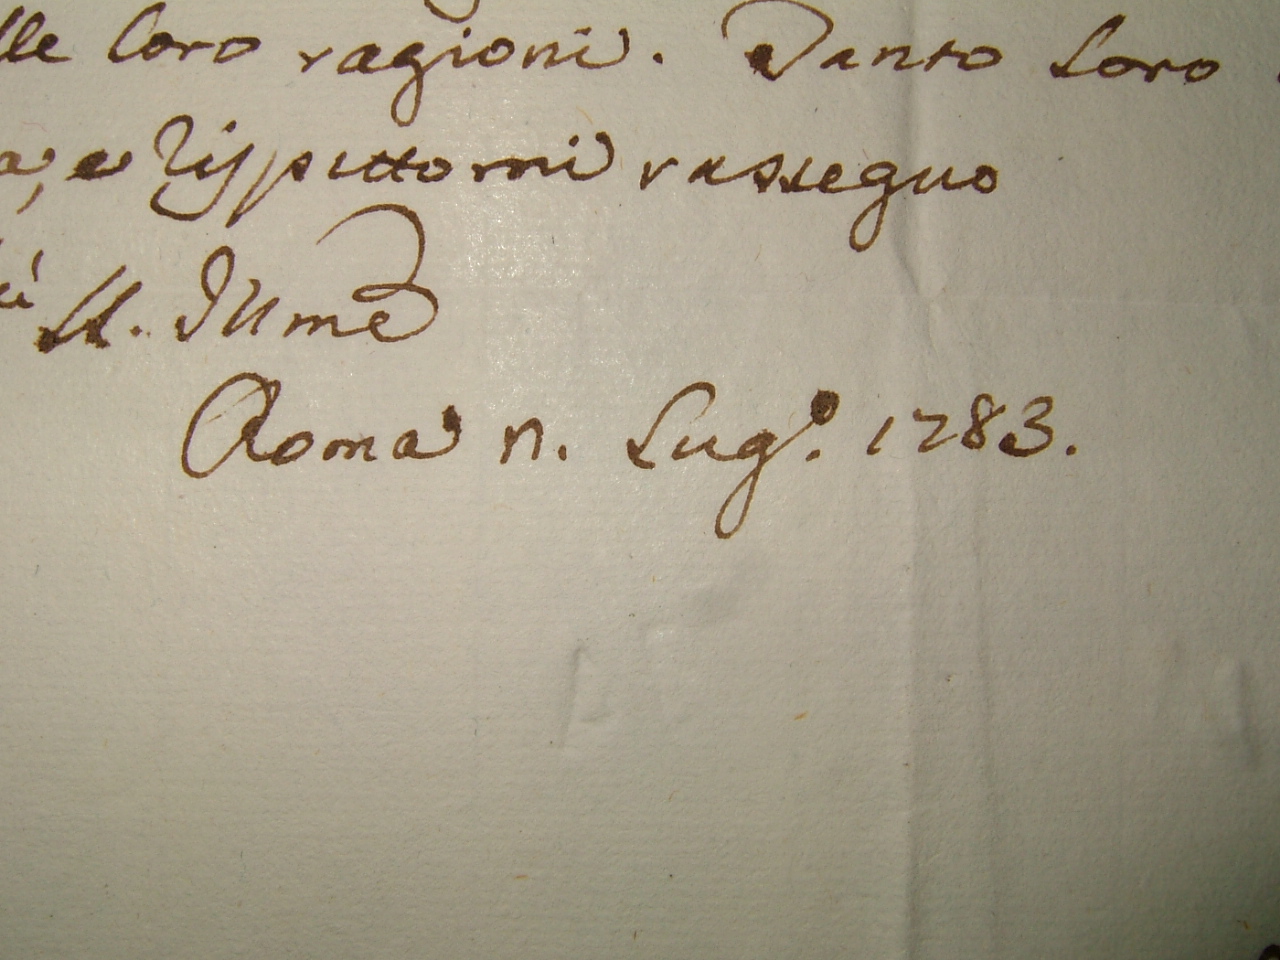 lle loro ragioni. Tanto loro
a, e rispetto mi rassegno
LL. Illme
Roma n. Lugo. 1783.